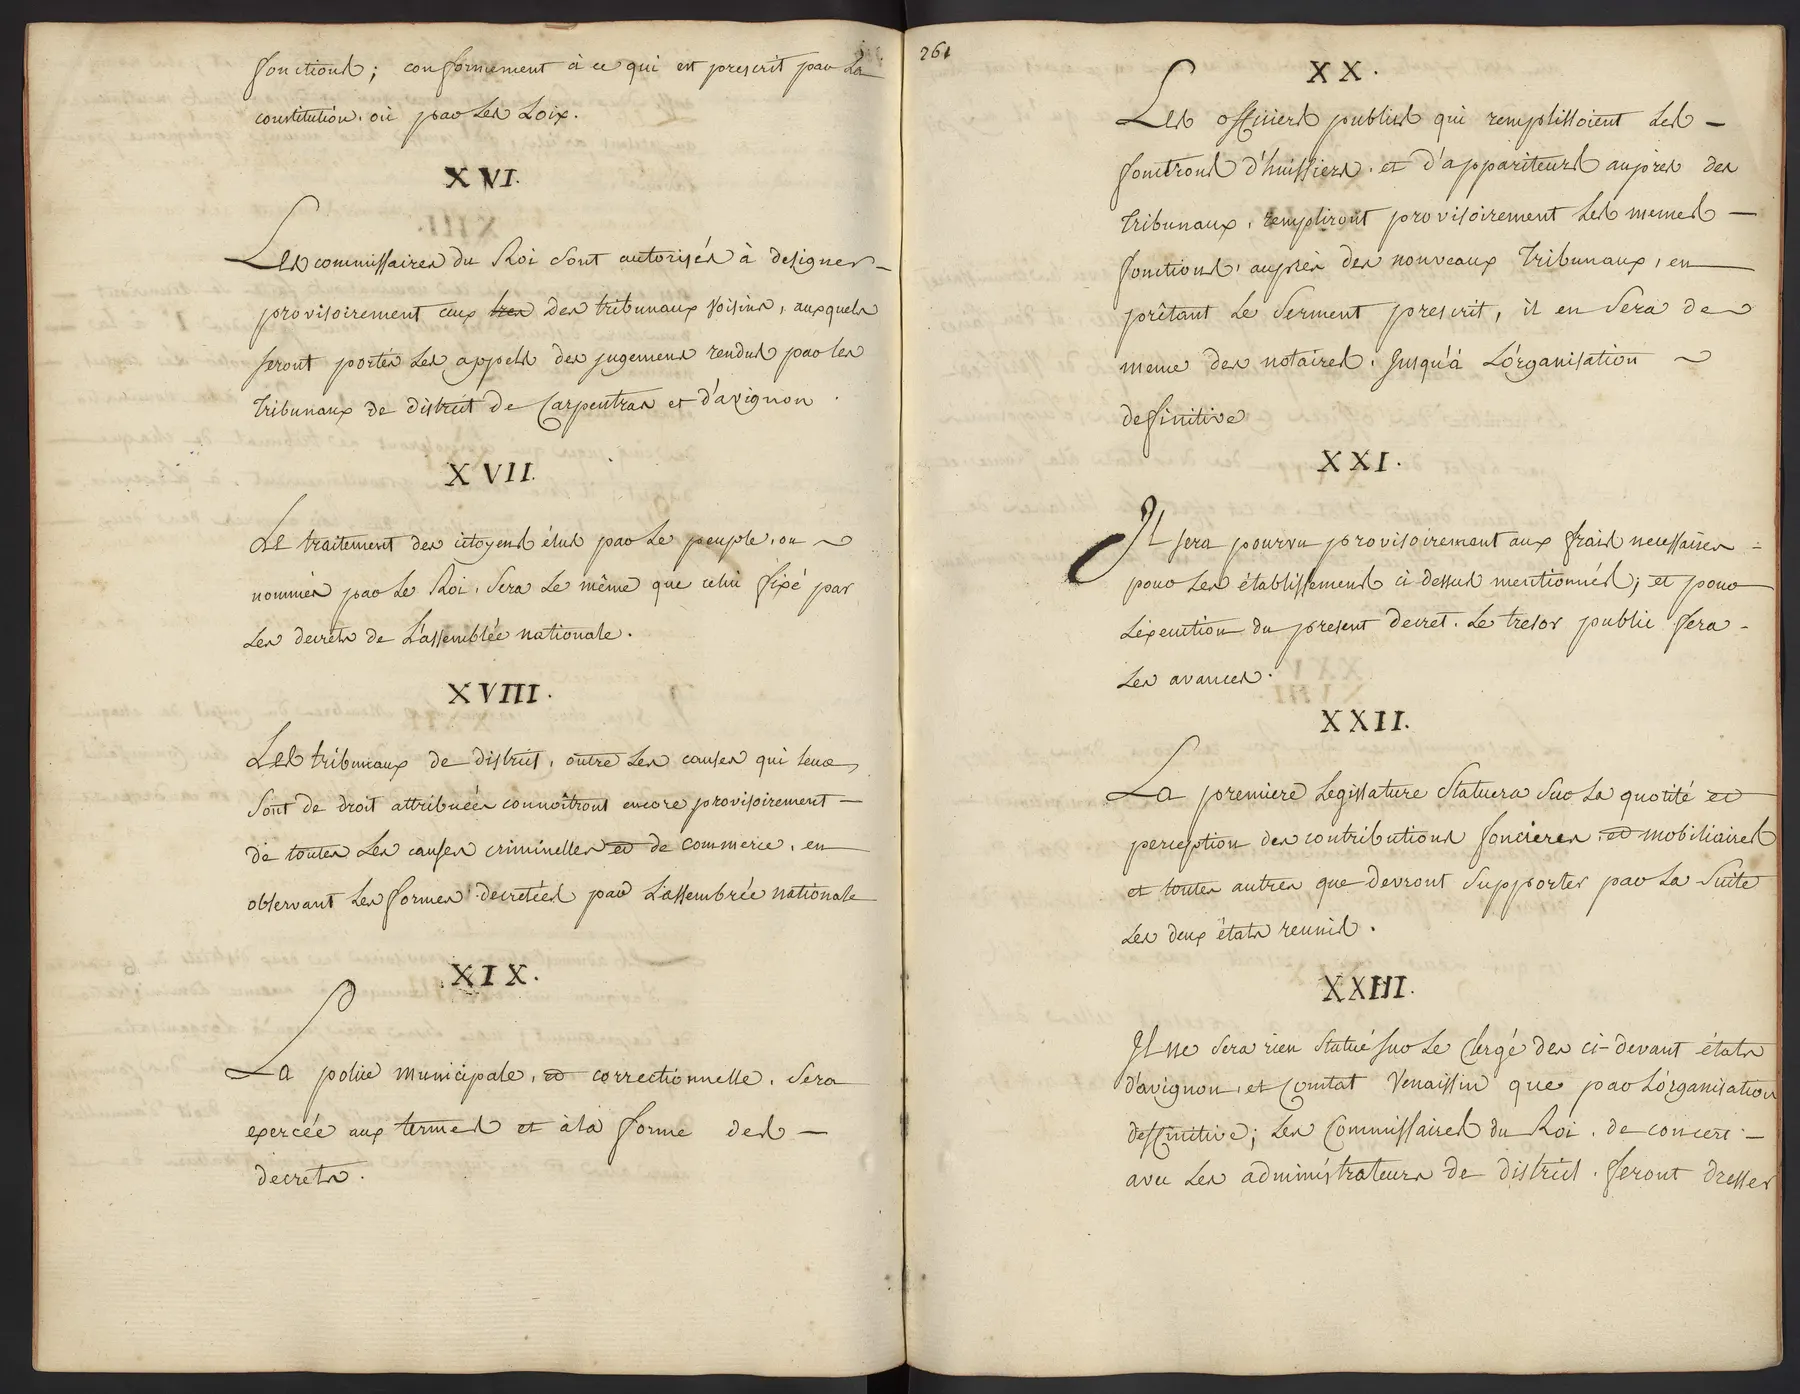 fonctions; conformement à ce qui est prescrit par La
constitution, ou par Les Loix.
XVI.
Les commissaires du Roi sont autorisés à designer
provisoirement ceux des tribunaux voisins, auxquels
seront portés Les appels des jugemens rendus par les
Tribunaux de district de Carpentras et d'avignon.
XVII.
Le traitement des citoyens élus par Le peuple, ou
nommés par Le Roi, sera Le même que celui fixé par
Les decrets de L'assemblée nationale.
XVIII.
Les tribunaux de district, outre Les causes qui leur
sont de droit attribuées connoîtront encore provisoirement
de toutes Les causes criminelles et de commerce, en
observant Les formes decretées par L'assemblée nationale
XIX.
La police municipale, et correctionnelle, sera
exercée aux termes et à la forme des
decrets.
261
XX.
Les officiers publics qui remplissoient Les
fonctions d'huissiers, et d'appariteurs auprès des
Tribunaux, rempliront provisoirement Les memes
fonctions, auprès des nouveaux Tribunaux, en
prêtant Le serment prescrit, il en sera de
meme des notaires, jusqu'à L'organisation
definitive
XXI.
Il sera pourvu provisoirement aux frais necessaires
pour Les établissemens ci dessus mentionnés; et pour
L'execution du present decret. Le tresor public fera
Les avances.
XXII.
La premiere Legislature statuera sur La quotité et
perception des contributions foncieres, et mobiliaires
et toutes autres que devront supporter par La suite
Les deux états reunis.
XXIII.
Il ne sera rien statué sur Le Clergé des ci-devant états
d'avignon, et Comtat Venaissin que par L'organisation
definitive; Les Commissaires du Roi, de concert
avec Les administrateurs de district, feront dresser